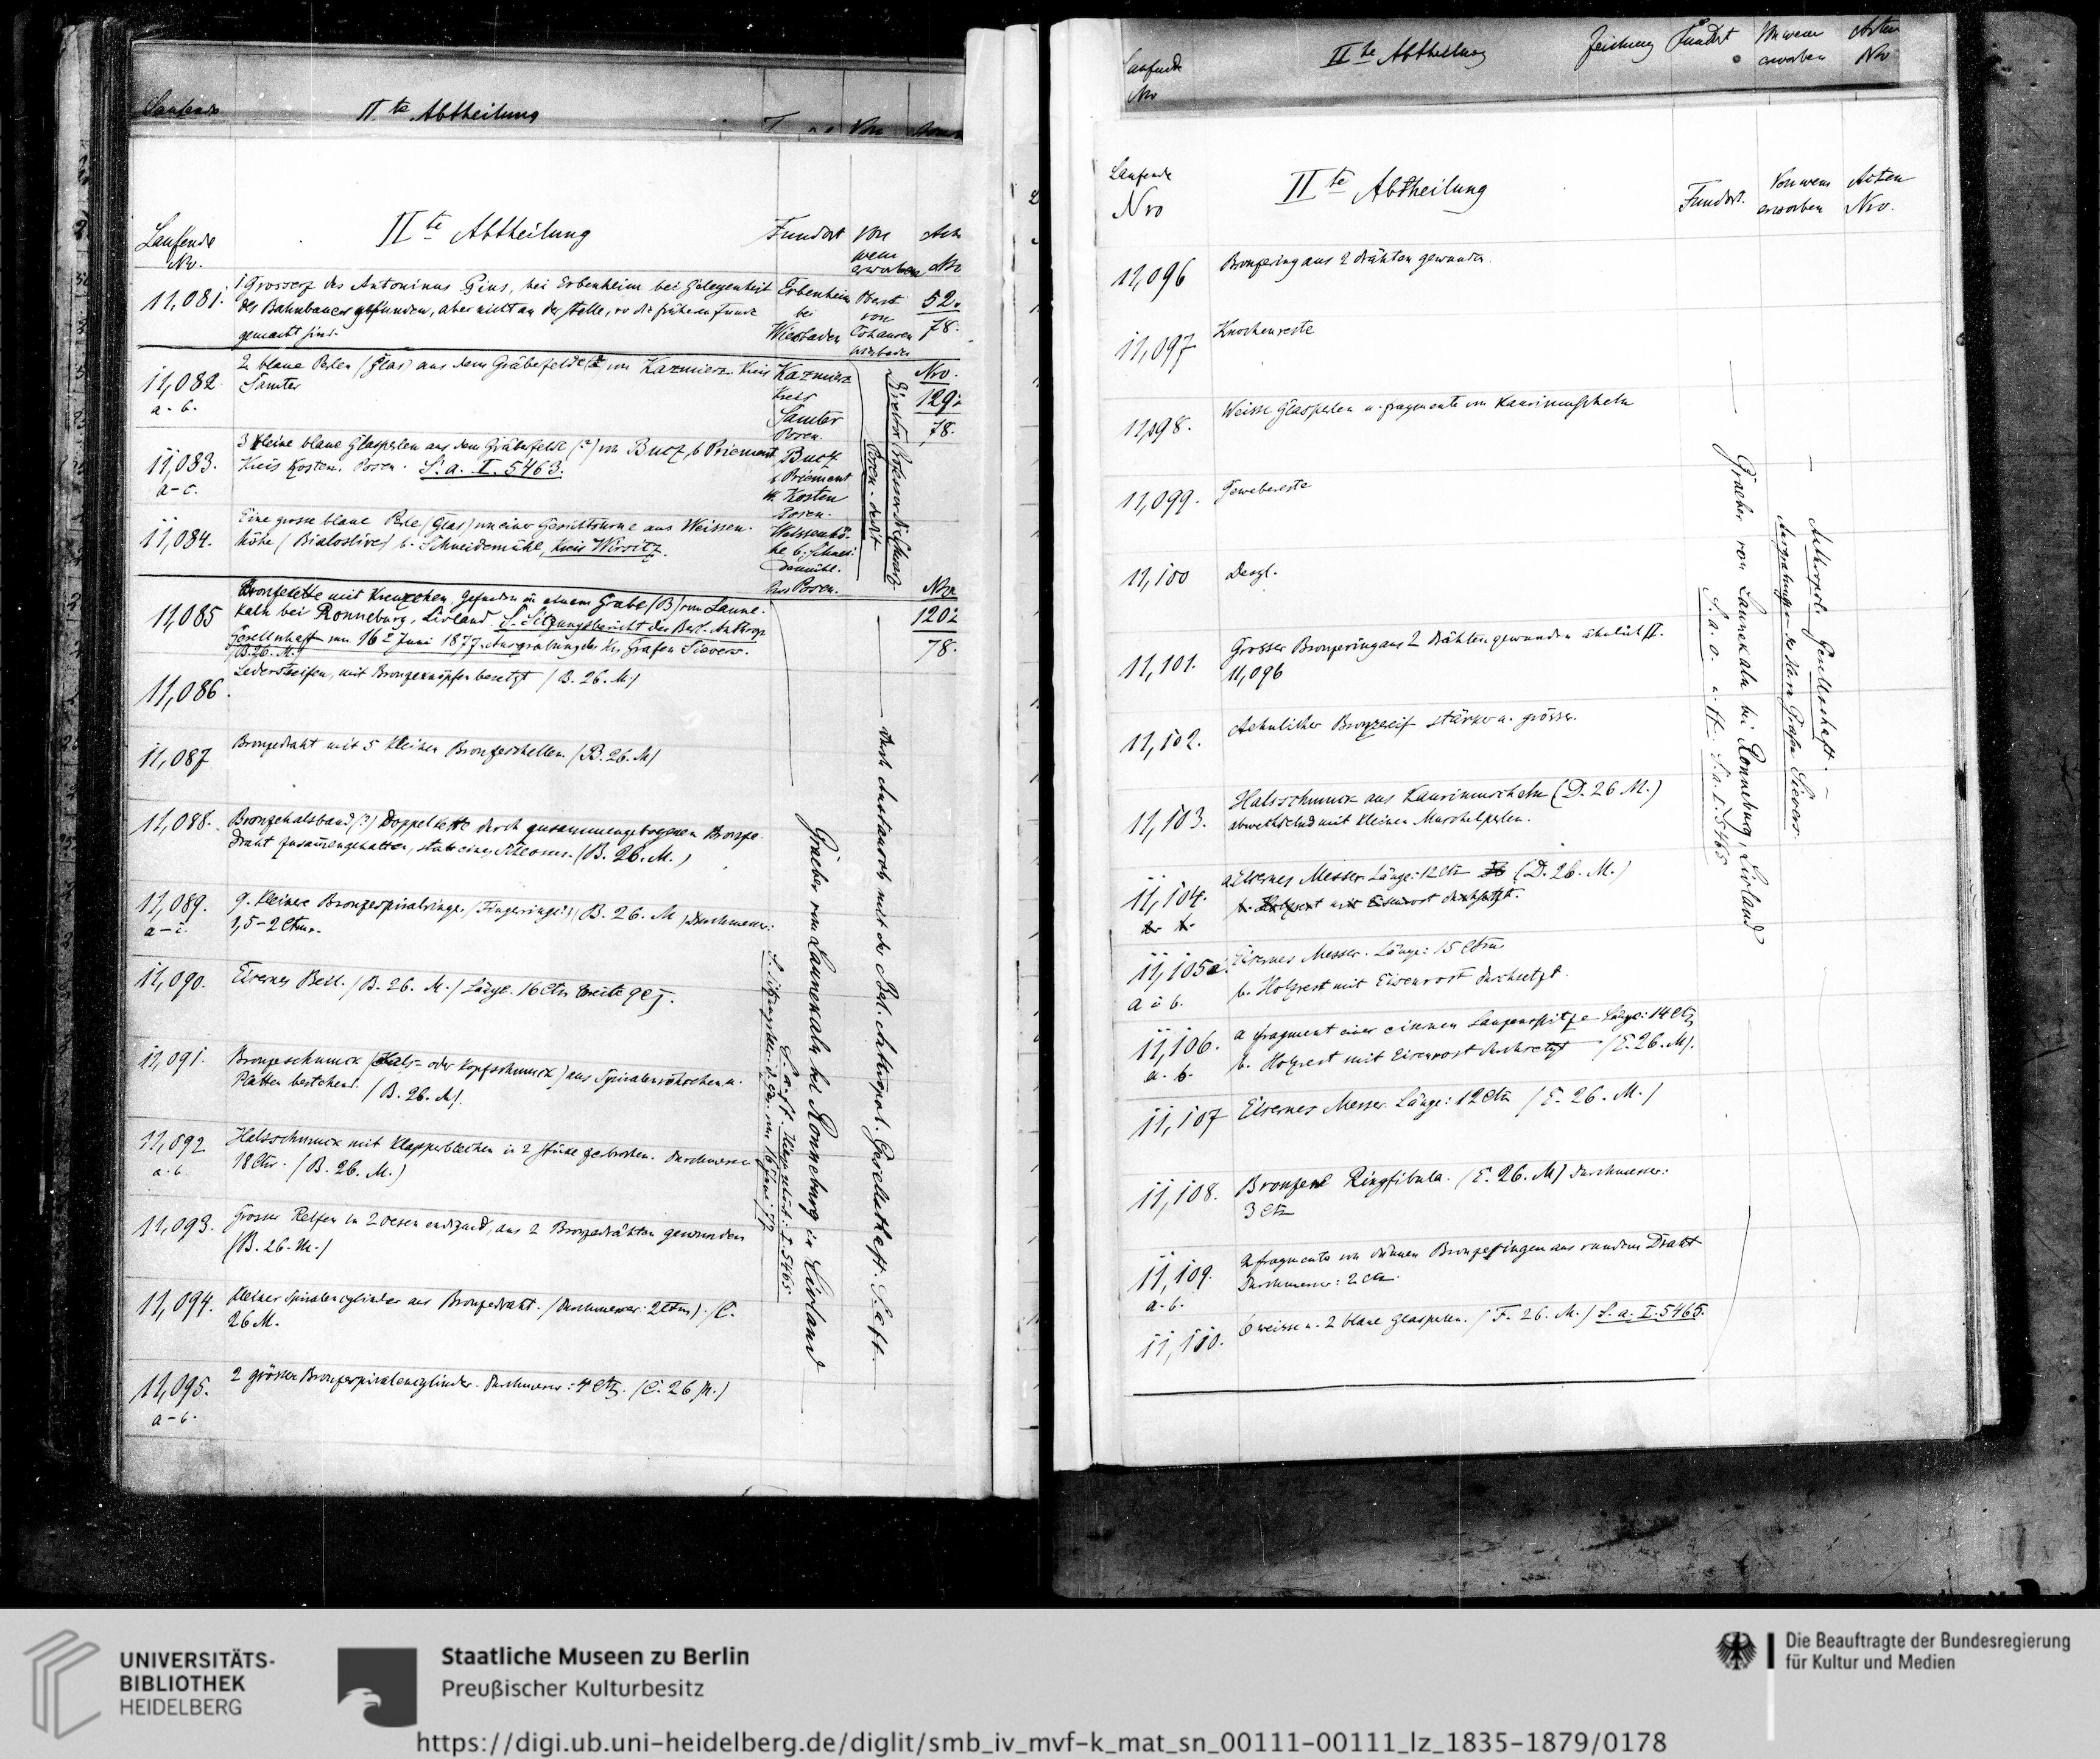 Laufende
IIte Abtheilung
Von
Laufende
Nro.
IIte Abtheilung
Fundort
Von
wem
erworben
Nr
11,081.
1 Grosserz des Antoninus Pius, bei Erbenheim bei Gelegenheit
des Bahnbaues gefunden, aber nicht an der Stelle, wo die früheren Funde
gemacht sind.
Erbenheim
bei
Wiesbaden
Oberst
von
Cohausen
Wiesbaden
52.
78.
11,082
a-b.
2 blaue Perlen (Glas) aus dem Gräberfelde von Kazmierz Kreis
Samter
Kazmierz
Kreis
Samter
Posen.
Nro.
129:
78.
11,083.
a-c.
3 kleine blaue Glasperlen aus dem Gräberfelde (?) von Bucz b Priement
Kreis Kosten. Posen. S. a. I. 5463.
Bucz
b Priement
Kr Kosten
Posen.
11,084.
Eine grosse blaue Perle (Glas) von einer Gesichtsurne aus Weissen-
höhe (Bialosliwe) b. Schneidemühl, Kreis Wirsitz.
Weissenhö-
he b. Schnei-
demühl.
Posen.
Direktor Professor W. Schwartz
Posen. dedit
11,085
Bronzekette mit Kreuzchen, gefunden in einem Grabe (B) von Laune-
kaln bei Ronneburg, Livland. S. Sitzungsbericht der Berl. Anthrop
Gesellschaft vom 16 Juni 1877. Ausgrabung des Hr. Grafen Sievers.
(B. 26. M.)
Nro
120:
78.
11,086.
Lederstreifen, mit Bronzeknöpfen besetzt (B. 26. M.)
11,087
Bronzedraht mit 5 kleinen Bronzeschellen (B. 26. M)
11,088.
Bronzehalsband (?) Doppelkette durch zusammengebogenen Bronze-
draht zusammengehalten, statt eines Schlosses. (B. 26. M.)
11,089.
a-i.
9. kleinere Bronzespiralringe (Fingerringe?) (B. 26. M) Durchmesser:
1,5-2 Ctm.
11,090.
Eisernes Beil. (B. 26. M.) Länge. 16 Ctm Breite 9
11,091.
Bronzeschmuck (Hals- oder Kopfschmuck) aus Spiralenröhrchen u.
Platten bestehend. (B. 26. M).
11,092
a. b.
Halsschmuck mit Klapperblechen in 2 Stücke zerbrochen. Durchmesser
18 Ctm. (B. 26. M.)
11,093.
Grosser Reifen in 2 Oesen endigend, aus 2 Bronzedrähten gewunden
(B. 26. M.)
11,094.
Kleiner Spiralencylinder aus Bronzedraht. (Durchmesser: 2 Ctm). (C.
26 M.
11,095.
a-b.
2 grössere Bronzespiralencylinder. Durchmesser: 4 Ctm. (C. 26 M.)
S. Sitzungsber. d. Ges. vom 16 Juni 77
S. a. ff. Hierzu gehört: I 5465
Graeber von Launekaln bei Ronneburg in Livland
durch Austausch mit der Berl. Anthropol. Gesellschaft. S. a ff.
Laufende
Nro
IIte Abtheilung
Zeichnung
Fundort
Von wem
erworben
Akten
No
Laufende
Nro
IIte Abtheilung
Fundort.
Von wem
erworben
Acten
Nro.
11,096
Bronzering aus 2 Drähten gewunden.
11,097
Knochenreste
11,098.
Weisse Glasperlen u. Fragmente von Kaurimuscheln
11,099.
Gewebereste
11,100
Desgl.
11,101.
Grosser Bronzering aus 2 Drähten gewunden ähnlich II.
11,096
11,102.
Aehnlicher Bronzereif stärker u. grösser.
11,103.
Halsschmuck aus Kaurimuscheln (D. 26 M.)
abwechselnd mit kleinen Muschelperlen.
11,104.
a. b.
a Eisernes Messer. Länge: 12 Ctm (D. 26. M.)
b. Holzrest mit Eisenrost durchsetzt.
11,105 a.
a u b.
Eisernes Messer. Länge: 15 Ctm
b. Holzrest mit Eisenrost durchsetzt.
11,106.
a. b.
a Fragment einer eisernen Lanzenspitze Länge: 14 Ctm
b. Holzrest mit Eisenrost durchsetzt (E. 26. M).
11,107
Eisernes Messer. Länge: 12 Ctm (E. 26. M.)
11,108.
Bronzene Ringfibula. (E. 26. M) Durchmesser:
3 Ctm
11,109.
a. b.
2 Fragmente von dünnen Bronzeringen aus rundem Draht
Durchmesser: 2 Ctm.
11,110.
6 weisse u. 2 blaue Glasperlen. (F. 26. M.) S. a. I. 5465.
S. a. o. u. ff. S. a. I. 5465
Graeber von Launekaln bei Ronneburg, Livland
Ausgrabungen des Herrn Grafen Sievers.
Anthropol. Gesellschaft.
UNIVERSITÄTS-
BIBLIOTHEK
HEIDELBERG
Staatliche Museen zu Berlin
Preußischer Kulturbesitz
Die Beauftragte der Bundesregierung
für Kultur und Medien
https://digi.ub.uni-heidelberg.de/diglit/smb_iv_mvf-k_mat_sn_00111-00111_lz_1835-1879/0178